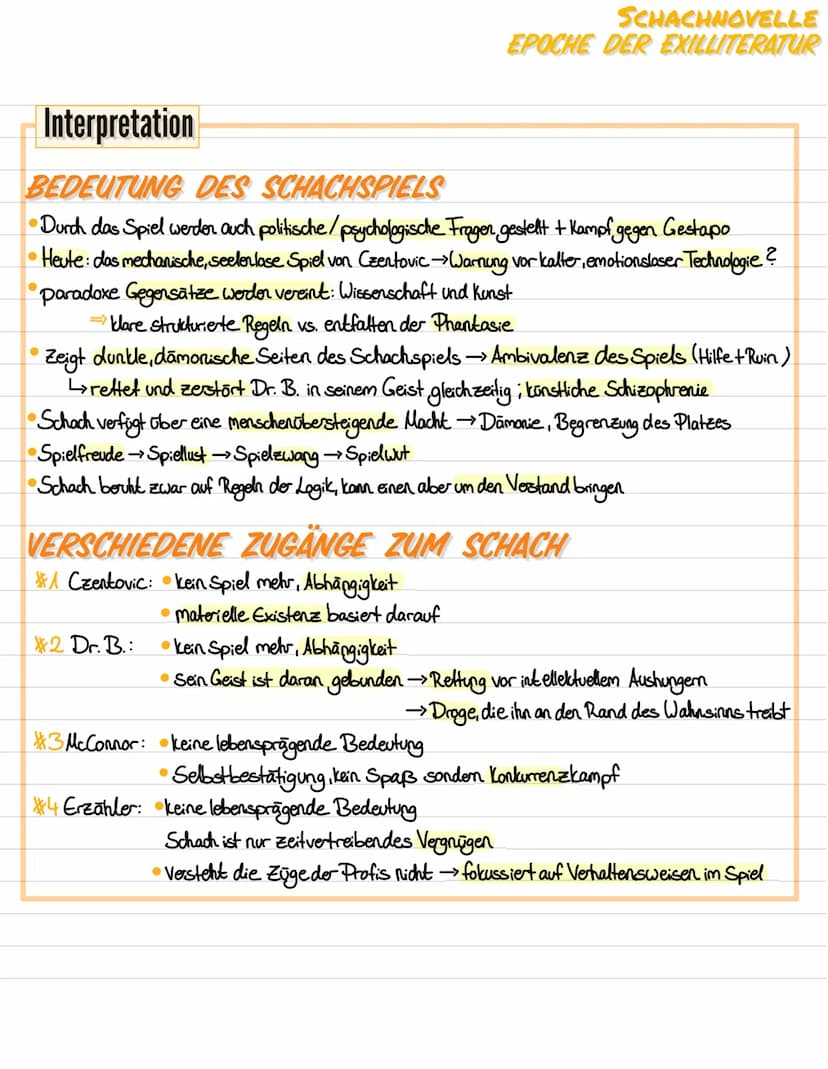 SCHACHNOVELLE
EPOCHE DER EXILLITERATUR
Interpretation
BEDEUTUNG DES SCHACHSPIELS
• Durch das Spiel werden auch politische/psychologische Fragen gestellt + Kampf gegen Gestapo
• Heute: das mechanische, seelenlose Spiel von Czentovic → Warnung vor kalter, emotionsloser Technologie?
• paradoxe Gegensätze werden vereint: Wissenschaft und Kunst
⇒ klare strukturierte Regeln vs. entfalten der Phantasie
• Zeigt dunkle, dämonische Seiten des Schachspiels → Ambivalenz des Spiels (Hilfe + Ruin)
↳ rettet und zerstört Dr. B. in seinem Geist gleichzeitig; künstliche Schizophrenie
• Schach verfügt über eine menschenübersteigende Macht → Dämonie, Begrenzung des Platzes
• Spielfreude → Spiellust → Spielzwang → Spielwut
• Schach beruht zwar auf Regeln der Logik, kann einen aber um den Verstand bringen
VERSCHIEDENE ZUGÄNGE ZUM SCHACH
#1 Czentovic: • kein Spiel mehr, Abhängigkeit
• materielle Existenz basiert darauf
#2 Dr. B.: • kein Spiel mehr, Abhängigkeit
• sein Geist ist daran gebunden → Rettung vor intellektuellem Aushungern
→ Droge, die ihn an den Rand des Wahnsinns treibt
#3 McConnor: • keine lebensprägende Bedeutung
• Selbstbestätigung, kein Spaß sondern Konkurrenzkampf
#4 Erzähler: • keine lebensprägende Bedeutung
Schach ist nur zeitvertreibendes Vergnügen
• versteht die Züge der Profis nicht → fokussiert auf Verhaltensweisen im Spiel